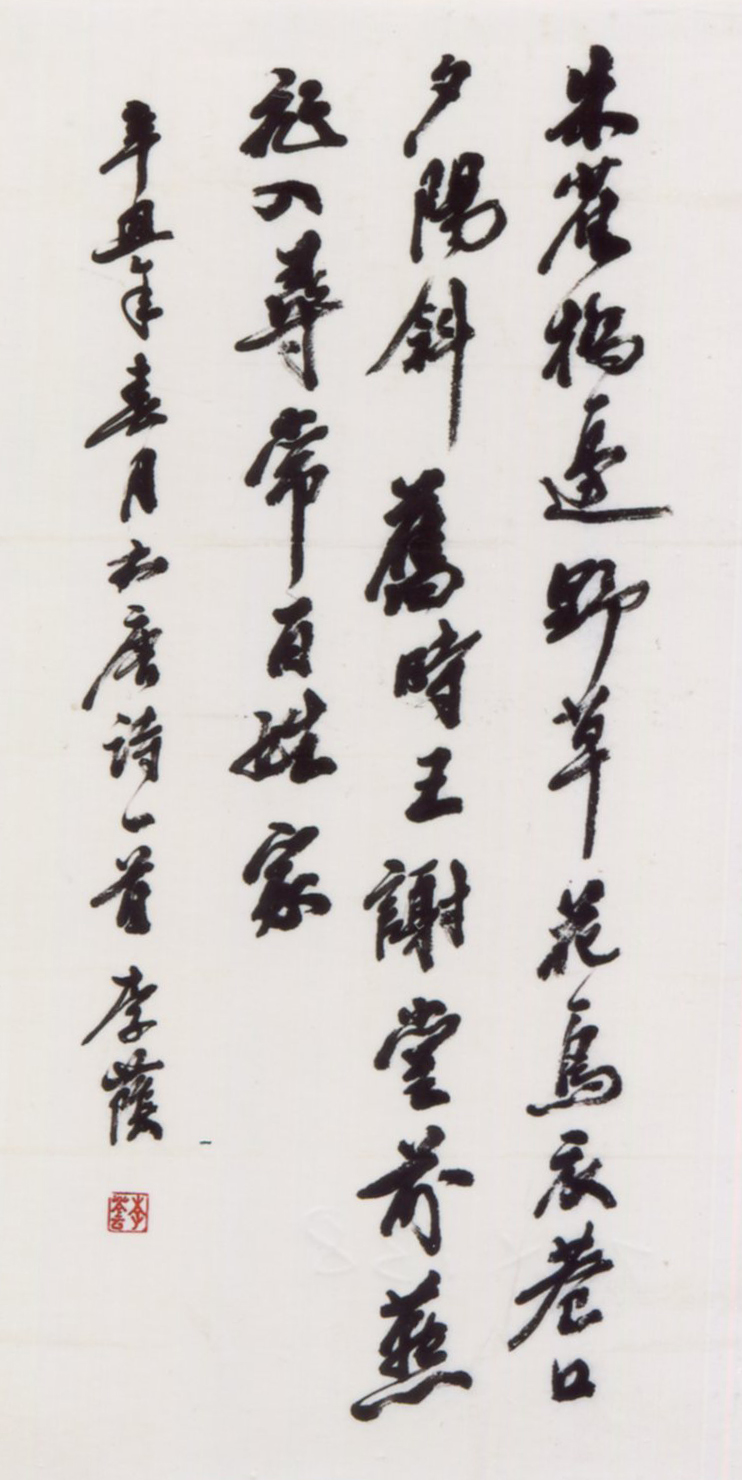 朱雀橋邊野草花烏衣巷口
夕陽斜舊時王謝堂前燕
飛入尋常百姓家
辛丑年春月书唐诗一首 李蔭